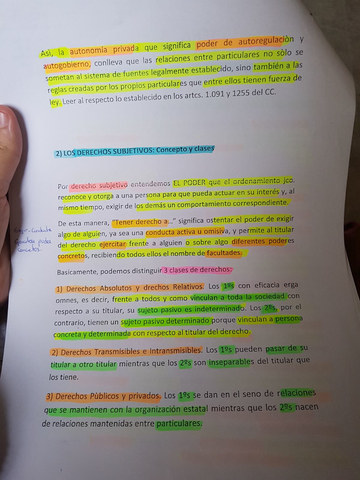 Así, la autonomía privada que significa poder de autoregulación y
autogobierno, conlleva que las relaciones entre particulares no sólo se
sometan al sistema de fuentes legalmente establecido, sino también a las
reglas creadas por los propios particulares que entre ellos tienen fuerza de
ley. Leer al respecto lo establecido en los artcs. 1.091 y 1255 del CC.
2) LOS DERECHOS SUBJETIVOS: Concepto y clases
Por derecho subjetivo entendemos EL PODER que el ordenamiento jco.
reconoce y otorga a una persona para que pueda actuar en su interés y, al
mismo tiempo, exigir de los demás un comportamiento correspondiente.
De esta manera, "tener derecho a..." significa ostentar el poder de exigir
algo de alguien, ya sea una conducta activa u omisiva, y permite al titular
del derecho ejercitar frente a alguien o sobre algo diferentes poderes
concretos, recibiendo todos ellos el nombre de facultades.
Basicamente, podemos distinguir 3 clases de derechos:
1) Derechos Absolutos y drechos Relativos. Los 1ºs con eficacia erga
omnes, es decir, frente a todos y como vinculan a toda la sociedad con
respecto a su titular, su sujeto pasivo es indeterminado. Los 2ºs, por el
contrario, tienen un sujeto pasivo determinado porque vinculan a persona
concreta y determinada con respecto al titular del derecho.
2) Derechos Transmisibles e Intransmisibles. Los 1ºs pueden pasar de su
titular a otro titular mientras que los 2ºs son inseparables del titular que
los tiene.
3) Derechos Públicos y privados. Los 1ºs se dan en el seno de relaciones
que se mantienen con la organización estatal mientras que los 2ºs nacen
de relaciones mantenidas entre particulares.